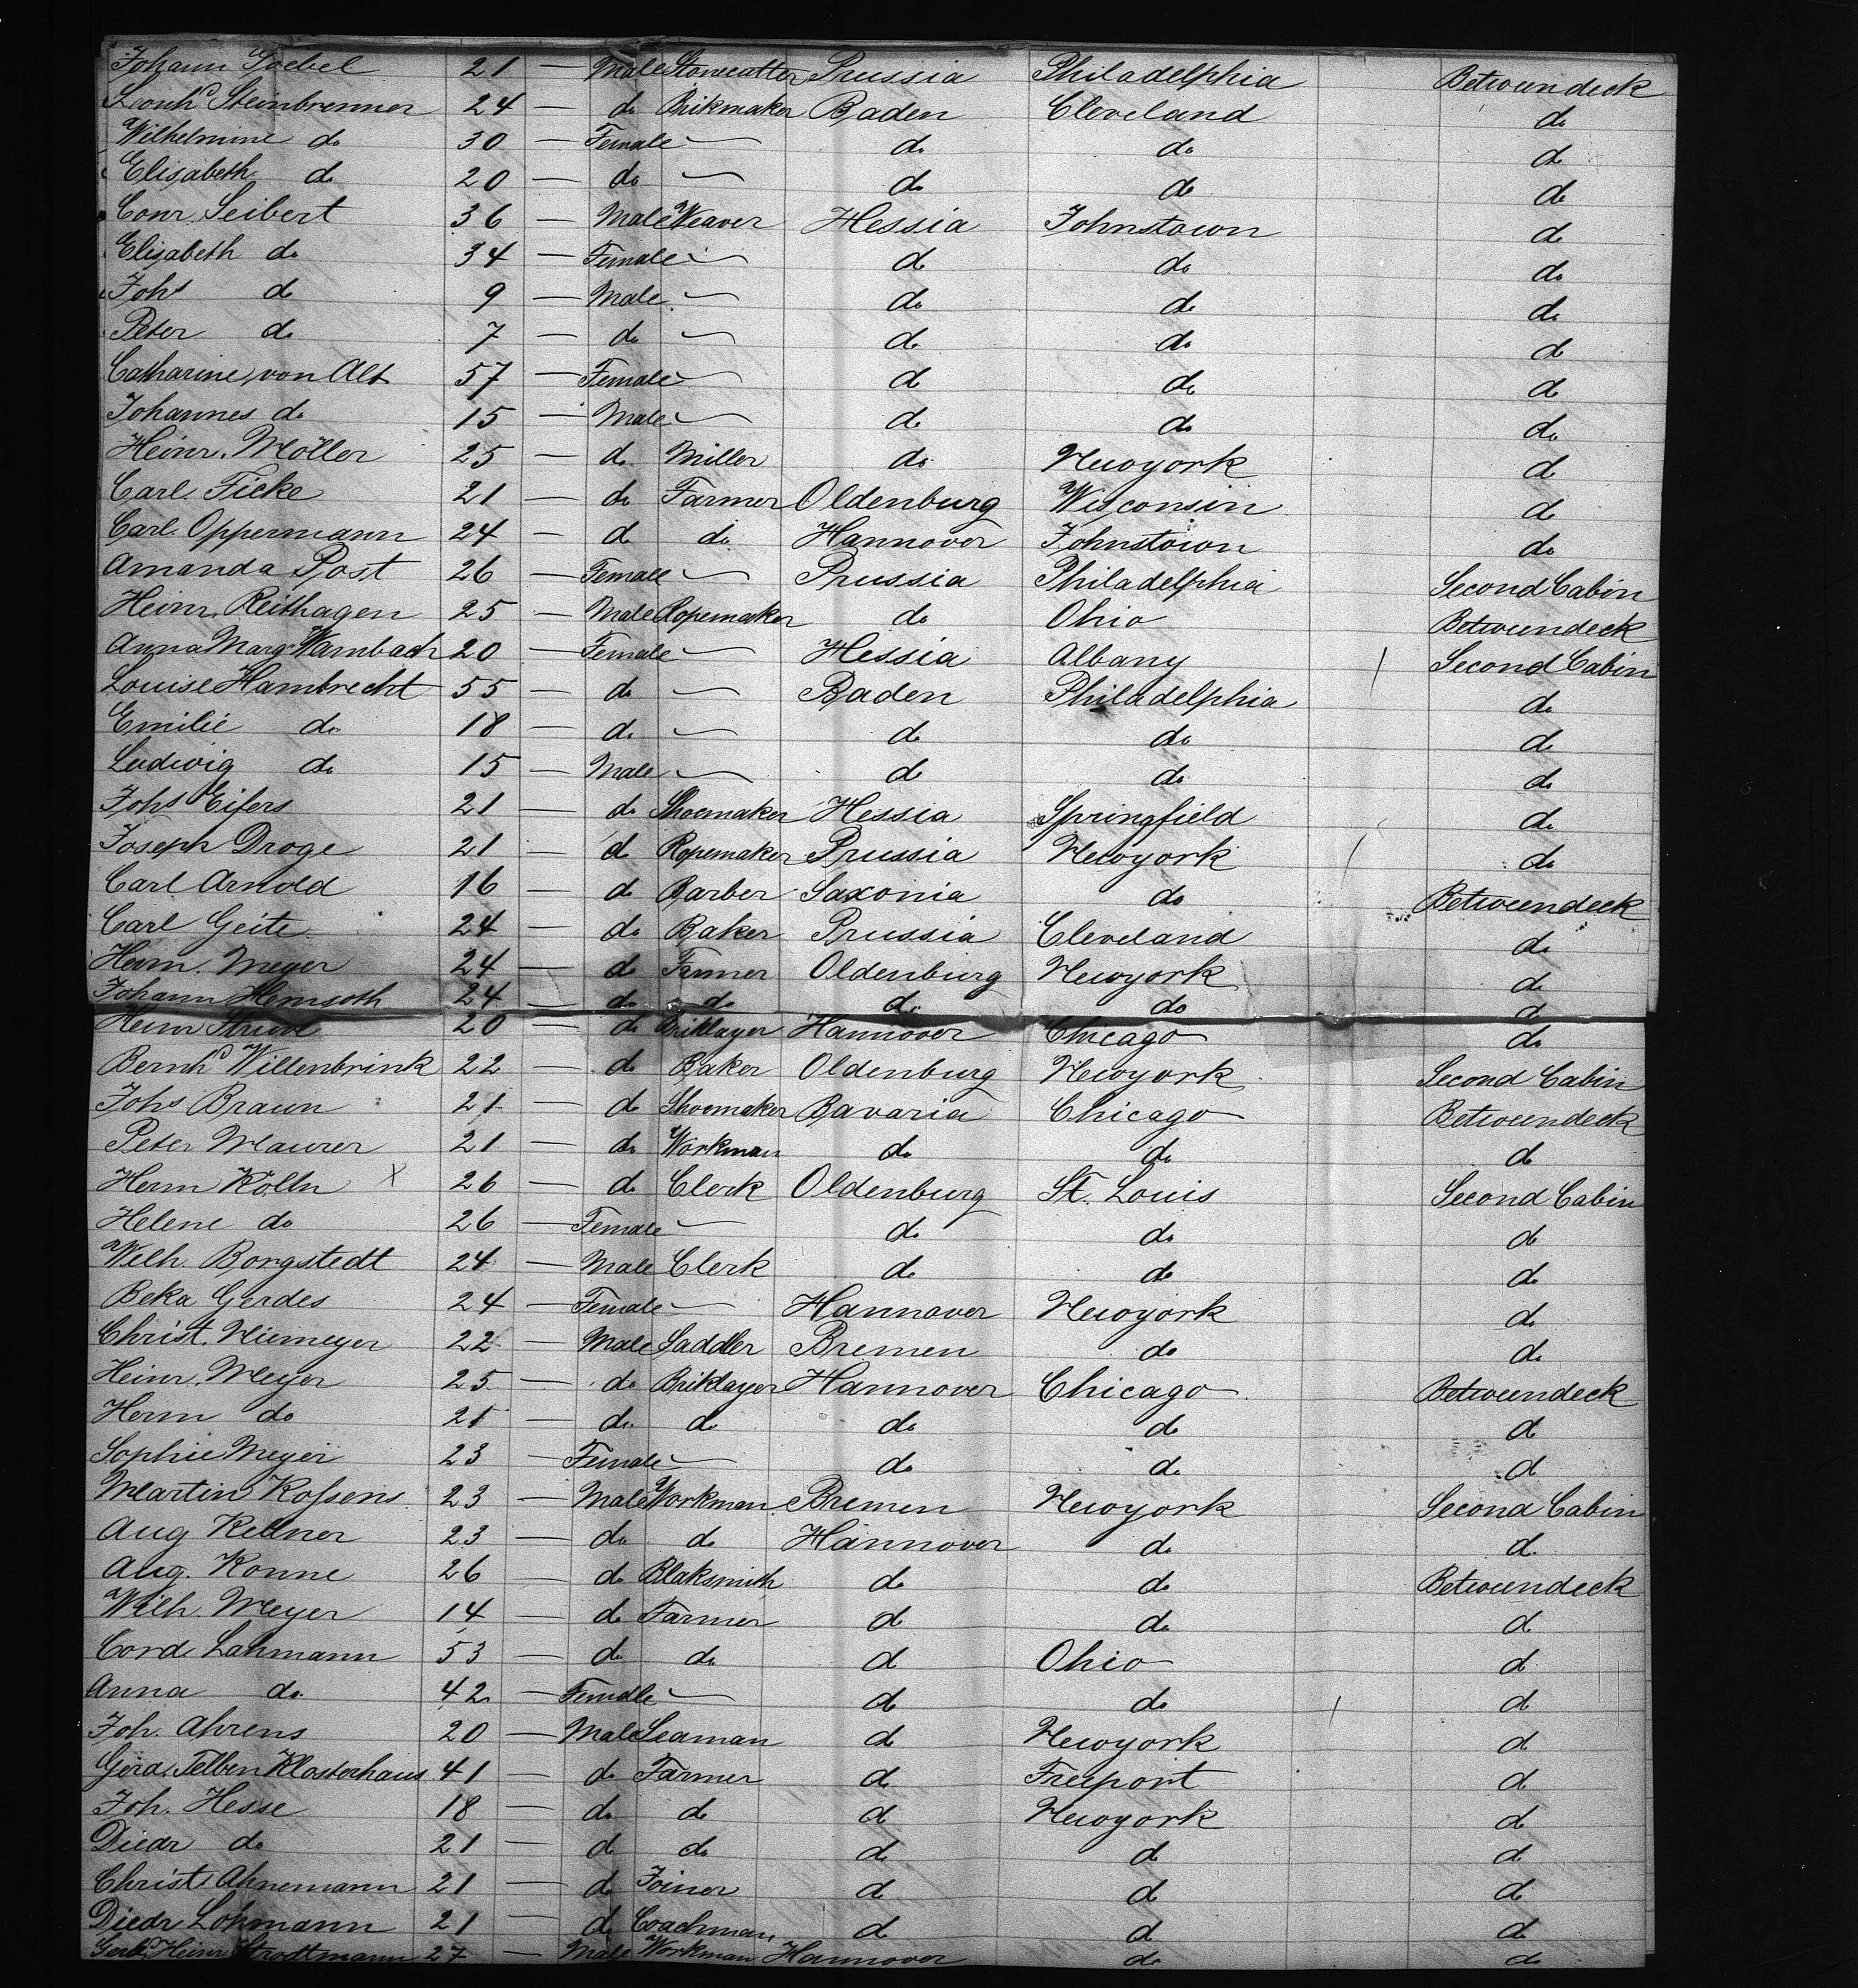 Johann Goebel 21 — Male Stonecutter Prussia Philadelphia Betweendeck
Leonhd Steinbrenner 24 — do Brikmaker Baden Cleveland do
Wilhelmine do 30 — Female — do do do
Elisabeth do 20 — do — do do do
Conr. Seibert 36 — Male Weaver Hessia Johnstown do
Elisabeth do 34 — Female — do do do
Johs do 9 — Male — do do do
Peter do 7 — do — do do do
Catharine von Alt 57 — Female — do do do
Johannes do 15 — Male — do do do
Heinr. Möller 25 — do Miller do Newyork do
Carl Ficke 21 — do Farmer Oldenburg Wisconsin do
Carl Oppermann 24 — do do Hannover Johnstown do
Amanda Post 26 — Female — Prussia Philadelphia Second Cabin
Heinr. Reithagen 25 — Male Ropemaker do Ohio Betweendeck
Anna Marg. Wambach 20 — Female — Hessia Albany Second Cabin
Louise Hambrecht 55 — do — Baden Philadelphia do
Emilie do 18 — do — do do do
Ludwig do 15 — Male — do do do
Johs Eifers 21 — do Shoemaker Hessia Springfield do
Joseph Droge 21 — do Ropemaker Prussia Newyork do
Carl Arnold 16 — do Barber Saxonia do Betweendeck
Carl Geite 24 — do Baker Prussia Cleveland do
Herm. Meyer 24 — do Farmer Oldenburg Newyork do
Johann Hemsoth 24 — do do do do do
Heinr Struve 20 — do Briklayer Hannover Chicago do
Bernhd Willenbrink 22 — do Baker Oldenburg Newyork Second Cabin
Johs Braun 21 — do Shoemaker Bavaria Chicago Betweendeck
Peter Maurer 21 — do Workman do do do
Herm Kölln X 26 — do Clerk Oldenburg St. Louis Second Cabin
Helene do 26 — Female — do do do
Wilh. Borgstedt 24 — Male Clerk do do do
Beka Gerdes 24 — Female — Hannover Newyork do
Christ. Niemeyer 22 — Male Saddler Bremen do do
Heinr. Meyer 25 — do Briklayer Hannover Chicago Betweendeck
Herm do 21 — do do do do do
Sophie Meyer 23 — Female — do do do
Martin Kofsens 23 — Male Workman Bremen Newyork Second Cabin
Aug Kellner 23 — do do Hannover do do
Aug. Konne 26 — do Blaksmith do do Betweendeck
Wilh. Meyer 14 — do Farmer do do do
Cord Lahmann 53 — do do do Ohio do
Anna do 42 — Female — do do do
Joh. Ahrens 20 — Male Seaman do Newyork do
Gerd. Telben Klosterhaus 41 — do Farmer do Freeport do
Joh. Hesse 18 — do do do Newyork do
Diedr do 21 — do do do do do
Christ. Ahnemann 21 — do Joiner do do do
Diedr Lohmann 21 — do Coachman do do do
Gerhd Heinr Strodtmann 27 — Male Workman Hannover do do